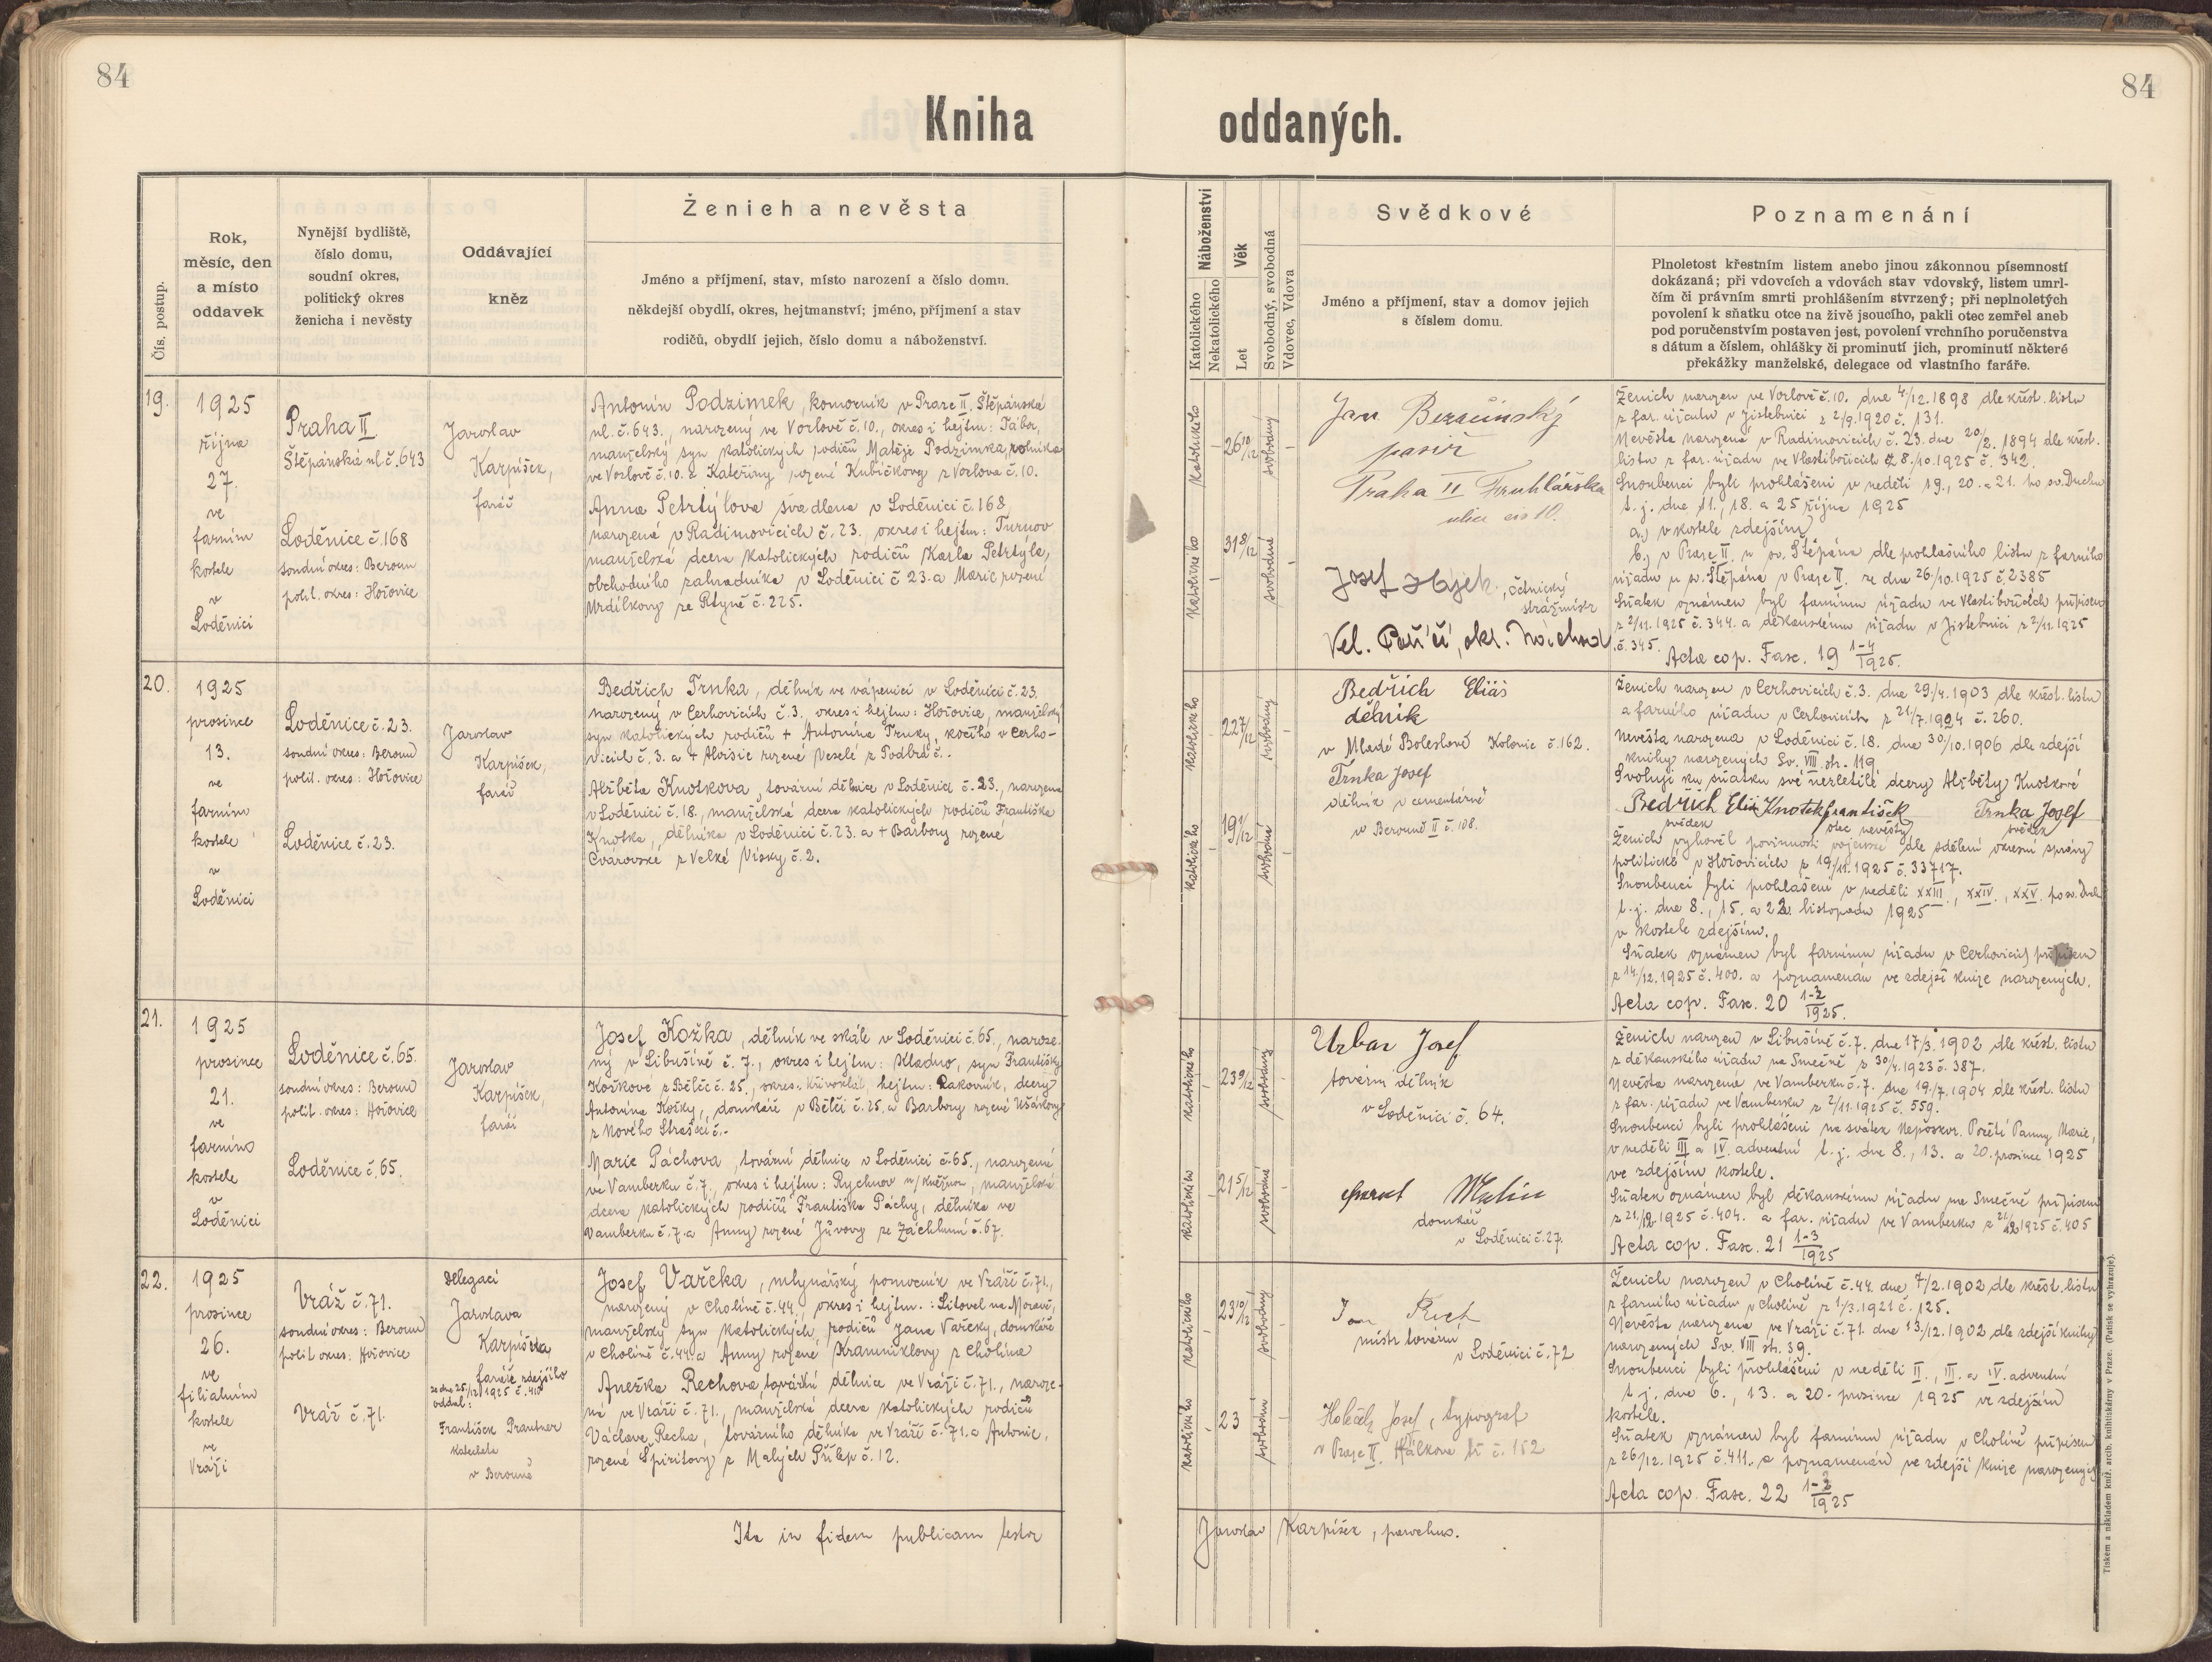 84
84
Kniha oddaných.
Čís. postup.
Rok,
měsíc, den
a místo
oddavek
Nynější bydliště,
číslo domu,
soudní okres,
politický okres
ženicha i nevěsty
Oddávající
kněz
Ženich a nevěsta
Jméno a příjmení, stav, místo narození a číslo domu.
někdejší obydlí, okres, hejtmanství; jméno, příjmení a stav
rodičů, obydlí jejich, číslo domu a náboženství.
Náboženství
Katolického
Nekatolického
Věk
Let
Svobodný, svobodná
Vdovec, Vdova
Svědkové
Jméno a příjmení, stav a domov jejich
s číslem domu.
Poznamenání
Plnoletost křestním listem anebo jinou zákonnou písemností
dokázaná; při vdovcích a vdovách stav vdovský, listem umrl-
čím či právním smrti prohlášením stvrzený; při neplnoletých
povolení k sňatku otce na živě jsoucího, pakli otec zemřel aneb
pod poručenstvím postaven jest, povolení vrchního poručenstva
s dátum a číslem, ohlášky či prominutí jich, prominutí některé
překážky manželské, delegace od vlastního faráře.
19.
1925
října
27.
ve
farním
kostele
v
Loděnici
Praha II
Štěpánská ul. č. 643
Loděnice č. 168
soudní okres: Beroun
polit. okres: Hořovice
Jaroslav
Karpíšek,
farář
Antonín Podzimek, komorník v Praze II, Štěpánská
ul. č. 643., narozený ve Vorlově č. 10., okres i hejtm: Tábor,
manželský syn katolických rodičů Matěje Podzimka, rolníka
ve Vorlově č. 10. a Kateřiny rozené Kubíčkovy z Vorlova č. 10.
Anna Petrtýlova švadlena v Loděnici č. 168
narozená v Radimovicích č. 23. okres i hejtm: Turnov
manželská dcera katolických rodičů Karla Petrtýla,
obchodního zahradníka v Loděnici č 23. a Marie rozené
Mrdílkovy ze Rtyně č. 225.
katolického
26 10/12
svobodný
katolického
31 8/12
svobodná
Jan
pasíř
Praha II Truhlářská
ulice čís 10.
Josef Hájek, četnický
strážmistr
Vel. Poříčí, okr. Náchod
Ženich narozen ve Vorlově č. 10. dne 4/12. 1898 dle křest. listu
z far. úřadu v Jistebnici z 2/9. 1920 č. 131.
Nevěsta narozená v Radimovicích č. 23. dne 20/2. 1894 dle křest.
listu z far. úřadu ve Vlastibořicích z 8./10. 1925 č. 342.
Snoubenci byli prohlášeni v neděli 19., 20. a 21. po sv. Duchu
t. j. dne 11., 18. a 25 října 1925
a.) v kostele zdejším
b.) v Praze II. u sv. Štěpána dle prohlašního listu z farního
úřadu u sv. Štěpána v Praze II. ze dne 26./10. 1925 č. 2385
Sňatek oznámen byl farnímu úřadu ve Vlastibořicích přípisem
z 2/11. 1925 č. 344. a děkanskému úřadu v Jistebnici z 2/11. 1925
č. 345.
Acta cop. Fasc. 19 1-4/1925.
20.
1925
prosince
13.
ve
farním
kostele
v
Loděnici
Loděnice č. 23.
soudní okres: Beroun
polit. okres: Hořovice
Loděnice č. 23.
Jaroslav
Karpíšek,
farář
Bedřich Trnka, dělník ve vápenici v Loděnici č. 23.
narozený v Cerhovicích č. 3. okres i hejtm: Hořovice, manželský
syn katolických rodičů + Antonína Trnky, kočího v Cerho-
vicích č. 3. a + Aloisie rozené Veselé z Podbrd č. -
Alžběta Knotkova, tovární dělnice v Loděnici č. 23., narozena
v Loděnici č. 18., manželská dcera katolických rodičů Františka
Knotka, dělníka v Loděnici č. 23. a + Barbory rozené
Cvárovské z Velké Vísky č. 2.
katolického
22 7/12
svobodný
katolického
19 1/12
svobodná
Bedřich Eliáš
dělník
v Mladé Boleslavě Kolonie č. 162.
Trnka Josef
dělník v cementárně
v Berouně II č. 108.
Ženich narozen v Cerhovicích č. 3. dne 29/4. 1903 dle křest. listu
a farního úřadu v Cerhovicích z 21/7. 1924 č. 260.
Nevěsta narozena v Loděnici č. 18. dne 30/10. 1906 dle zdejší
knihy narozených Sv. VIII. str. 119
Svoluji ku sňatku své nezletilé dcery Alžběty Knotkové
Bedřich Eliáš Knotek František Trnka Josef
svědek otec nevěsty svědek
Ženich vyhověl povinnosti vojenské dle sdělení okresní správy
politické v Hořovicích z 19/11. 1925 č. 33717.
Snoubenci byli prohlášeni v neděli XXIII., XXIV., XXV. po sv. Duch.
t. j. dne 8., 15. a 22. listopadu 1925
v kostele zdejším.
Sňatek oznámen byl farnímu úřadu v Cerhovicích přípisem
z 14/12. 1925 č. 400. a poznamenán ve zdejší knize narozených.
Acta cop. Fasc. 20 1-2/1925.
21.
1925
prosince
21.
ve
farním
kostele
v
Loděnici
Loděnice č. 65.
soudní okres: Beroun
polit. okres: Hořovice
Loděnice č. 65.
Jaroslav
Karpíšek,
farář
Josef Kožka, dělník ve skále v Loděnici č. 65., naroze-
ný v Libušíně č. 7., okres i hejtm: Kladno, syn Františky
Koškové z Bělče č. 25., okres: Křivoklát, hejtm: Rakovník, dcery
Antonína Košky, domkáře v Bělči č. 25. a Barbory rozené Ušákovy
z Nového Strašecí č. -
Marie Páchova, tovární dělnice v Loděnici č. 65., narozená
ve Vamberku č. 7., okres i hejtm: Rychnov n/Kněžnou, manželská
dcera katolických rodičů Františka Páchy, dělníka ve
Vamberku č. 7. a Anny rozené Jůvovy ze Záchlumí č. 67.
katolického
23 9/12
svobodný
katolického
21 5/12
svobodná
Urban Josef
tovární dělník
v Loděnici č. 64.
Malín
domkář
v Loděnici č. 27.
Ženich narozen v Libušíně č. 7. dne 17/3. 1902 dle křest. listu
z děkanského úřadu na Smečně z 30/4. 1923 č. 387.
Nevěsta narozena ve Vamberku č. 7. dne 19./7. 1904 dle křest. listu
z far. úřadu ve Vamberku z 2/11. 1925 č. 559.
Snoubenci byli prohlášeni na svátek Neposkvr. Početí Panny Marie,
v neděli III. a IV. adventní t. j. dne 8., 13. a 20. prosince 1925
ve zdejším kostele.
Sňatek oznámen byl děkanskému úřadu na Smečně přípisem
z 21/12 1925 č. 404. a far. úřadu ve Vamberku z 21/12 1925 č. 405
Acta cop. Fasc. 21 1-3/1925
22.
1925
prosince
26.
ve
filiálním
kostele
ve
Vráži
Vráž č. 71.
soudní okres: Beroun
polit okres: Hořovice
Vráž č. 71.
Delegací
Jaroslava
Karpíška
faráře zdejšího
ze dne 25/12 1925 č. 410
oddal:
František Prautner
katecheta
v Berouně
Josef Vařeka, mlynářský pomocník ve Vráži č. 71.,
narozený v Cholině č. 44., okres i hejtm.: Litovel na Moravě,
manželský syn katolických rodičů Jana Vařeky, domkáře
v Cholině č. 44. a Anny rozené Kramniklovy z Choliny
Anežka Rechova, tovární dělnice ve Vráži č. 71., naroze-
ná ve Vráži č. 71., manželská dcera katolických rodičů
Václava Recha, továrního dělníka ve Vráži č. 71. a Antonie,
rozené Špiritovy z Malých Přílep č. 12.
katolického
23 10/12
svobodný
katolického
23
svobodná
Jan Rech
mistr tovární
v Loděnici č. 72
Josef, typograf
v Praze II. Hálkova tř č. 152
Ženich narozen v Cholině č. 44. dne 7/2. 1902 dle křest. listu
z farního úřadu v Cholině z 1/3. 1921 č. 125.
Nevěsta narozena ve Vráži č. 71. dne 13./12. 1902 dle zdejší knihy
narozených Sv. VIII str. 39.
Snoubenci byli prohlášeni v neděli II., III. a IV. adventní
t. j. dne 6., 13. a 20. prosince 1925 ve zdejším
kostele.
Sňatek oznámen byl farnímu úřadu v Cholině přípisem
z 26/12. 1925 č. 411. a poznamenán ve zdejší knize narozených
Acta cop. Fasc. 22 1-2/1925
Ita in fidem publicam testor
Jaroslav Karpíšek, parochus.
Tiskem a nákladem kníž. arcib. knihtiskárny v Praze. (Patisk se vyhrazuje).